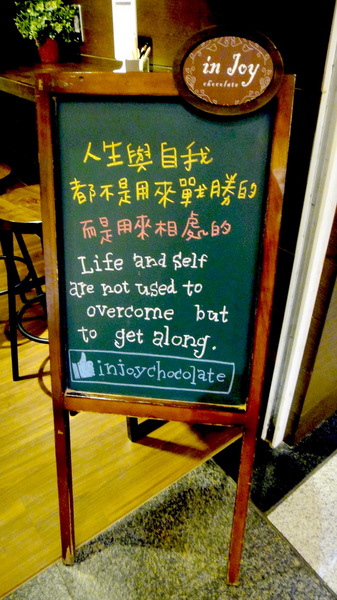 in Joy
chocolate
人生與自我
都不是用來戰勝的
而是用來相處的
Life and Self
are not used to
overcome but
to get along.
injoychocolate